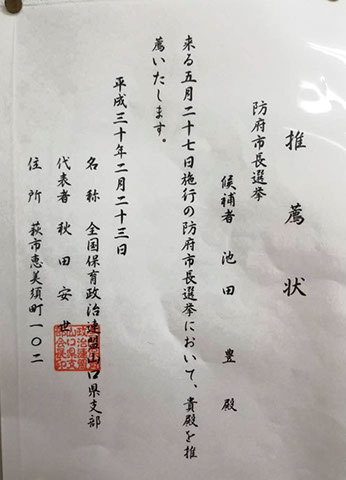 推薦状
防府市長選挙
候補者 池田 豊 殿
来る五月二十七日施行の防府市長選挙において、貴殿を推
薦いたします。
平成三十年二月二十三日
名称 全国保育政治連盟山口県支部
代表者 秋田安世
住所 萩市恵美須町一〇二